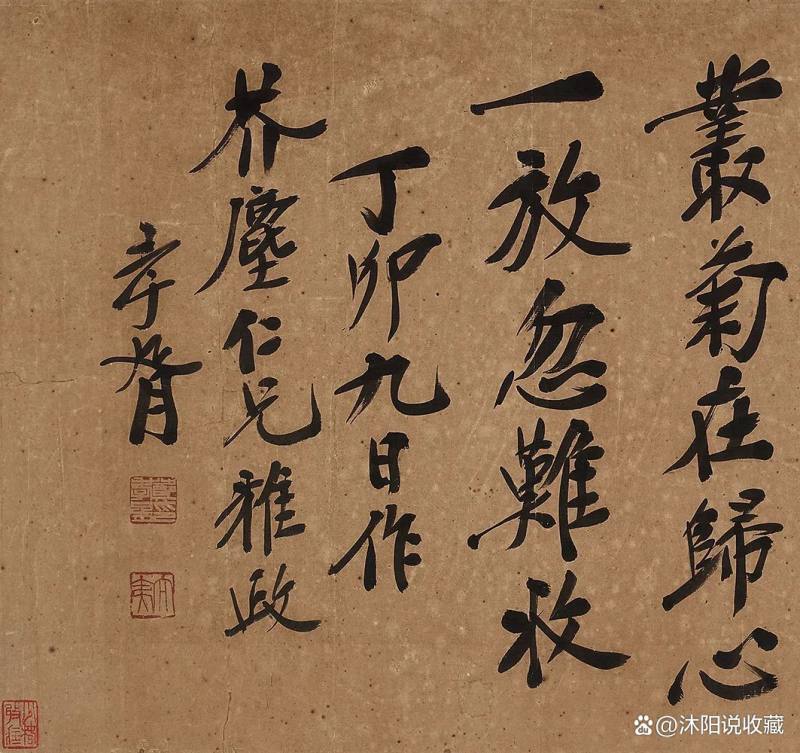 叢菊在歸心
一放忽難收
丁卯九日作
芥塵仁兄雅政
孝胥
沐阳说收藏